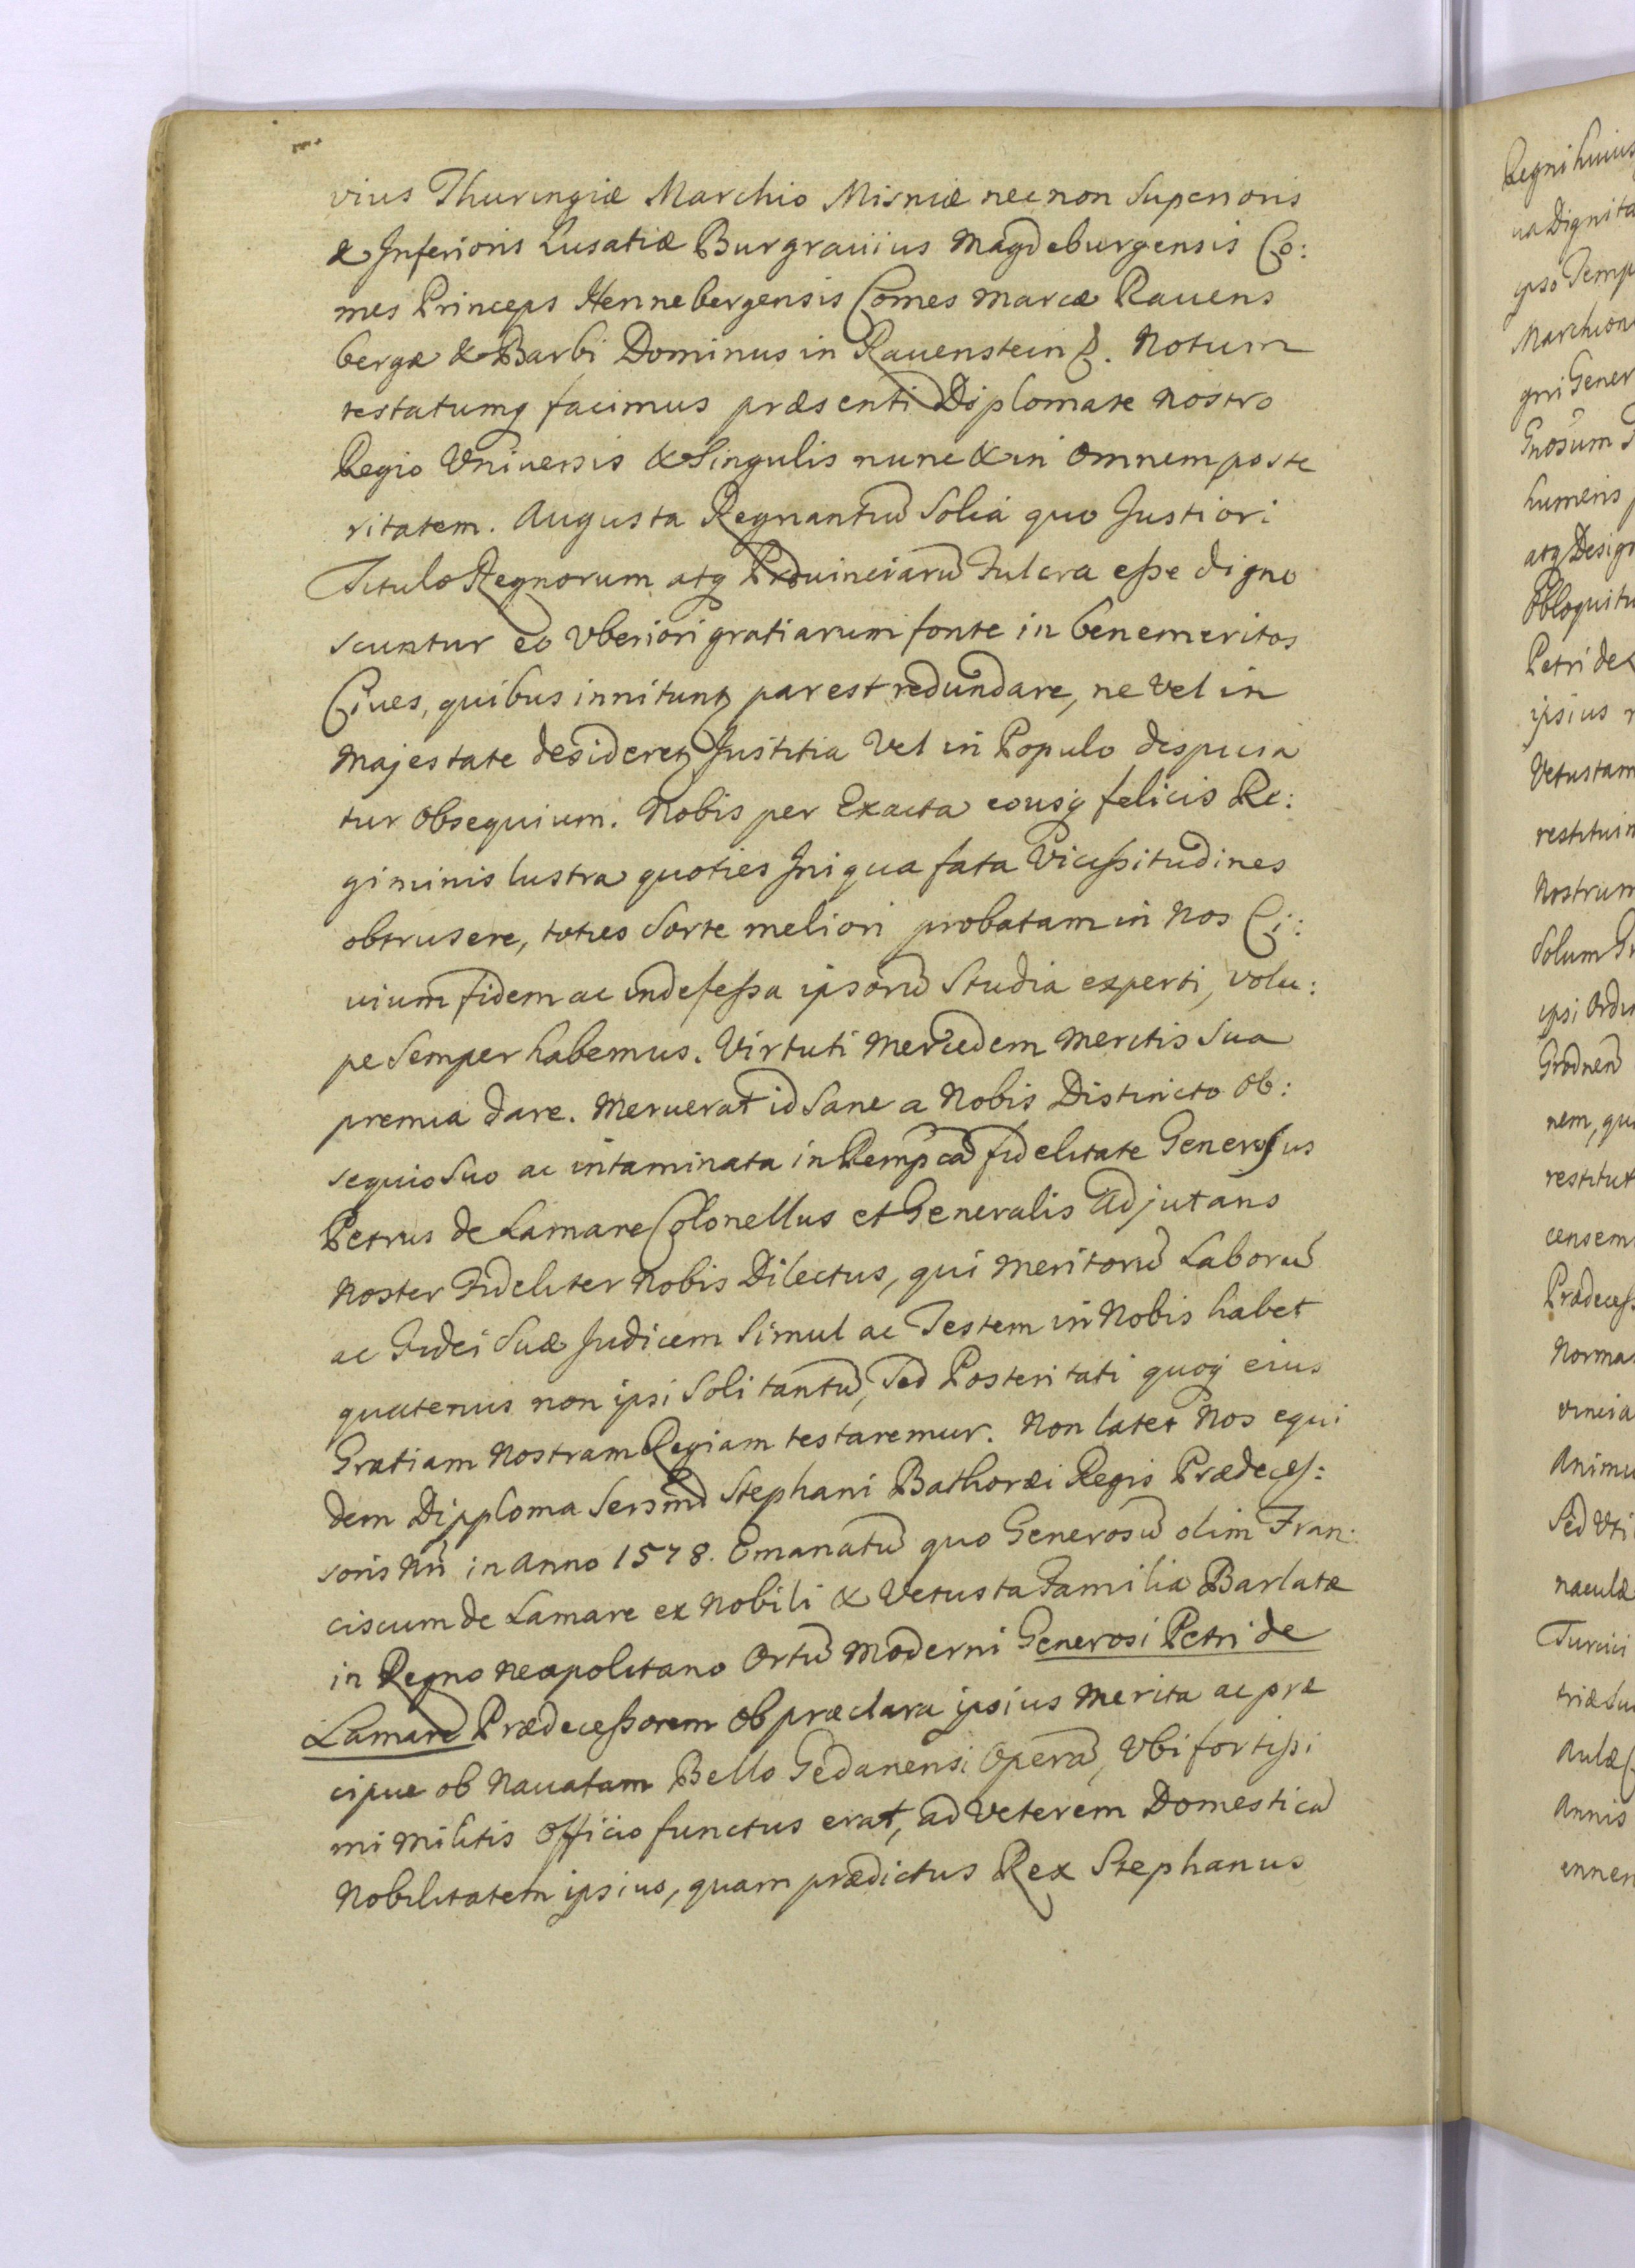 vius Thuringiæ Marchio Misniæ nec non Superioris
& Inferioris Lusatiæ Burgravius Magdeburgensis Co:
mes Princeps Hennebergensis Comes Marcæ Rauens
bergæ & Barbi Dominus in Rauenstein &. Notum
testatumq facimus præsenti Diplomate nostro
Regio Vniuersis & Singulis nunc & in omnem poste
ritatem. Augusta Regnantiũ Solia quo Justiori
Titulo Regnorum atq Prouinciarũ Fulcra eſse digno
scuntur eo Vberiori gratiarum fonte in benemeritos
Ciues, quibus innitunt par est redundare, ne vel in
Majestate desideret Justitia Vel in Populo despicia
tur obsequium. Nobis per Exacta eousq felicis Re:
giminis lustra quoties Iniqua fata Viciſsitudines
obtrusere, toties Sorte meliori probatam in Nos Ci:
uium fidem ac indefeſsa ipsorũ Studia experti, volu:
pe Semper habemus. Virtuti Mercedem Meritis Sua
premia dare. Meruerat id Sane a Nobis Distincto Ob:
sequio Suo ac intaminata in Rempcã fidelitate Generosus
Petrus de Lamare Colonellus et Generalis Adjutans
Noster Fideliter Nobis Dilectus, qui Meritorũ Laborũ
ac Fidei Suæ Judicem Simul ac Testem in Nobis habet
quatenus non ipsi Soli tantũ, Sed Posteritati quoq eius
Gratiam Nostram Regiam testaremur. Non latet Nos equi
dem Dipploma Sersmi Stephani Bathoræi Regis Prædeceſ:
soris Nri in Anno 1578. Emanatũ quo Generosũ olim Fran:
ciscum de Lamare ex Nobili & Vetusta Familia Barlatæ
in Regno Neapolitano Ortũ Moderni Generosi Petri de
Lamare Prædeceſsorem ob præclara ipsius Merita ac præ
cipue ob Navatam Bello Gedanensi Operã, Vbi fortiſsi
mi Militis Officio functus erat, ad Veterem Domesticã
Nobilitatem ipsius, quam prædictus Rex Stephanus
Regni huius
ipso Temp
Marchion
humeris
atq Desig
Obloquitu
Petri de
ipsius
Vetustam
restituim
Nostrum
Solum
ipsi Ordi
nem, qu
restitut
censem
Prædeceſs
Norma
vincia
Animu
Sed Vti
naculæ
Turcici
Aulæ
Annis